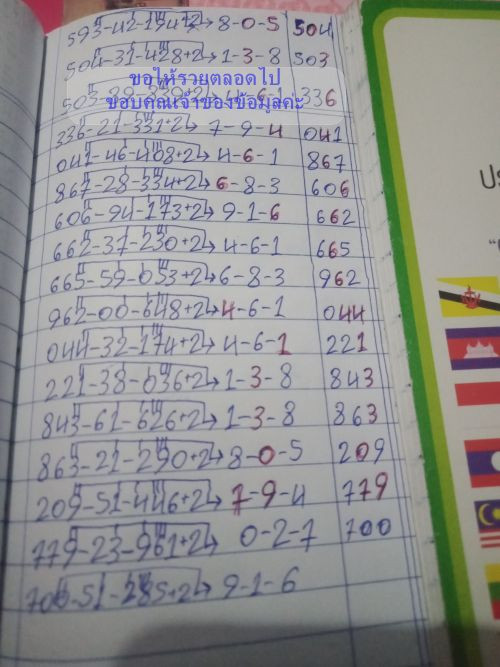 593-42-194+2→ 8-0-5 504
504-31-428+2→ 1-3-8 503
ขอให้รวยตลอดไป
4-6-1 336
ขอบคุณเจ้าของข้อมูลค่ะ
336-21-331+2→ 7-9-4 041
041-46-408+2→ 4-6-1 867
867-28-334+2→ 6-8-3 606
606-94-173+2→ 9-1-6 662
662-37-230+2→ 4-6-1 665
665-59-053+2→ 6-8-3 962
962-00-648+2→ 4-6-1 044
044-32-174+2→ 4-6-1 221
221-38-036+2→ 1-3-8 843
843-61-626+2→ 1-3-8 863
863-21-290+2→ 8-0-5 209
209-51-446+2→ 7-9-4 779
779-23-961+2→ 0-2-7 700
700-51-285+2→ 9-1-6
ปร